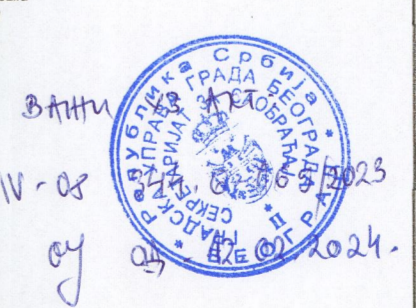 Република Србија
ГРАДСКА УПРАВА ГРАДА БЕОГРАДА
СЕКРЕТАРИЈАТ ЗА САОБРАЋАЈ
БЕОГРАД
II
ВАЖИ УЗ АКТ
IV-08
2023
од 02.2024.